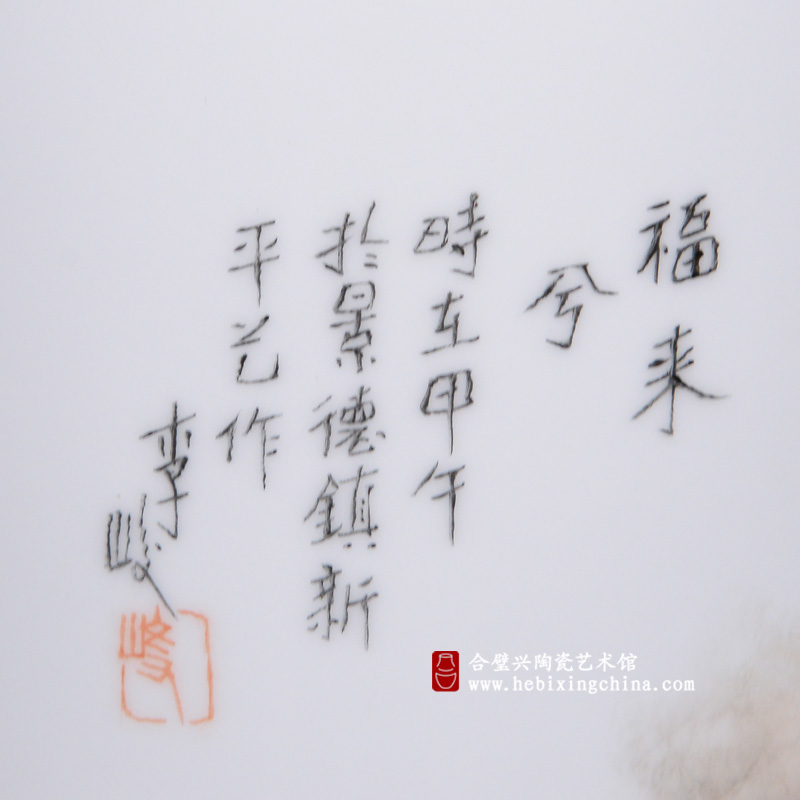 福来
兮
時在甲午
於景德鎮新
平艺作
李峻
峻
合璧兴陶瓷艺术馆
www.hebixingchina.com